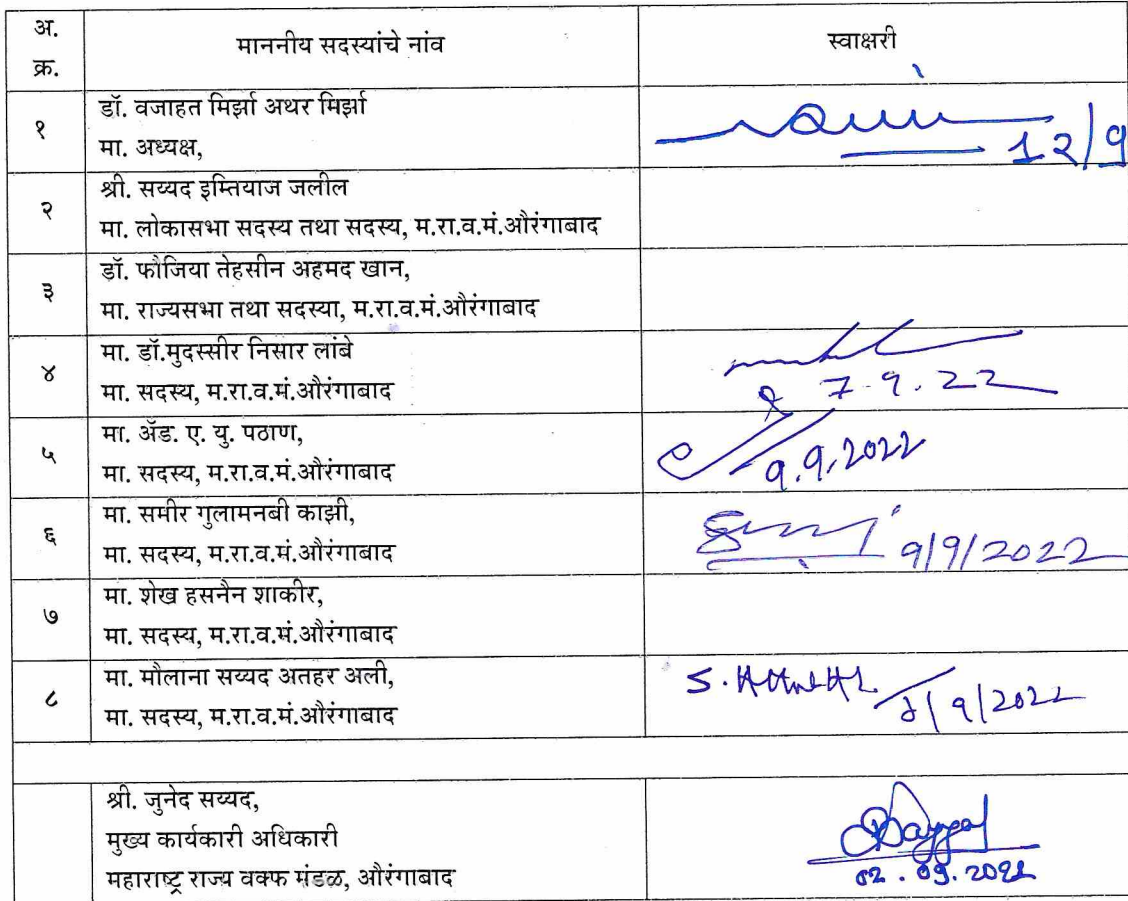 अ.
क्र.
माननीय सदस्यांचे नांव
स्वाक्षरी
१
डॉ. वजाहत मिर्झा अथर मिर्झा
मा. अध्यक्ष,
12/9
२
श्री. सय्यद इम्तियाज जलील
मा. लोकासभा सदस्य तथा सदस्य, म.रा.व.मं.औरंगाबाद
३
डॉ. फौजिया तेहसीन अहमद खान,
मा. राज्यसभा तथा सदस्या, म.रा.व.मं.औरंगाबाद
४
मा. डॉ.मुदस्सीर निसार लांबे
मा. सदस्य, म.रा.व.मं.औरंगाबाद
7.9.22
५
मा. ॲड. ए. यु. पठाण,
मा. सदस्य, म.रा.व.मं.औरंगाबाद
9.9.2022
६
मा. समीर गुलामनबी काझी,
मा. सदस्य, म.रा.व.मं.औरंगाबाद
9/9/2022
७
मा. शेख हसनैन शाकीर,
मा. सदस्य, म.रा.व.मं.औरंगाबाद
८
मा. मौलाना सय्यद अतहर अली,
मा. सदस्य, म.रा.व.मं.औरंगाबाद
श्री. जुनेद सय्यद,
मुख्य कार्यकारी अधिकारी
महाराष्ट्र राज्य वक्फ मंडळ, औरंगाबाद